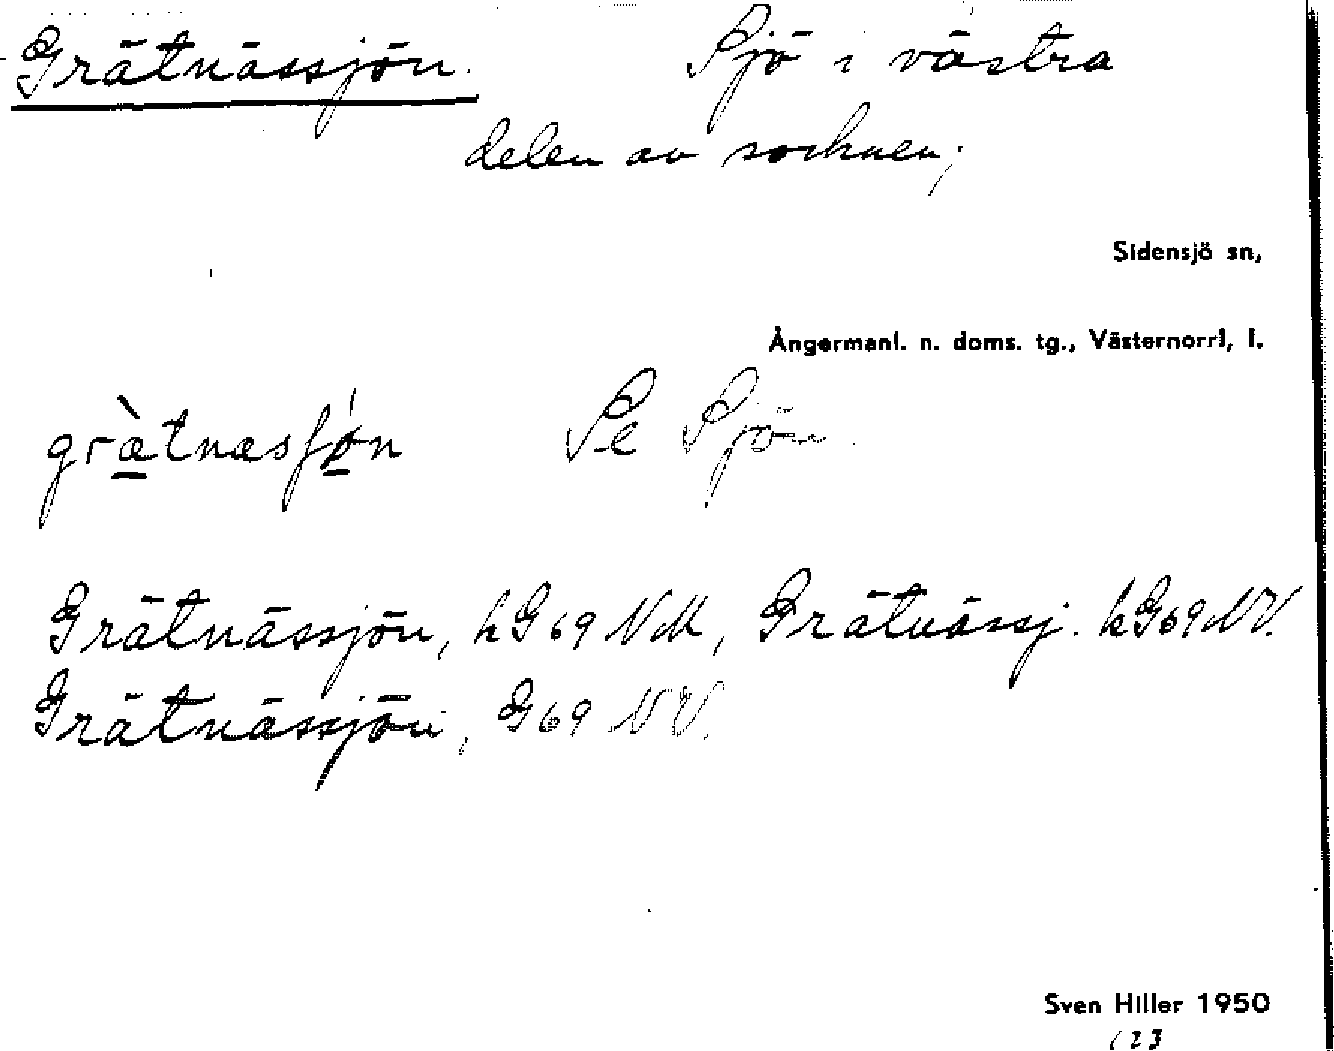 Grätnässjön. Sjö i västra
delen av socknen;
Sidensjö sn,
Ångermanl. n. doms. tg., Västernorrl. l.
grætnæsʃøn Se Sjön.
Grätnässjön, hG69 NM, Grätnässj. kG69 NV.
Grätnässjön, G69 NV.
Sven Hiller 1950
123